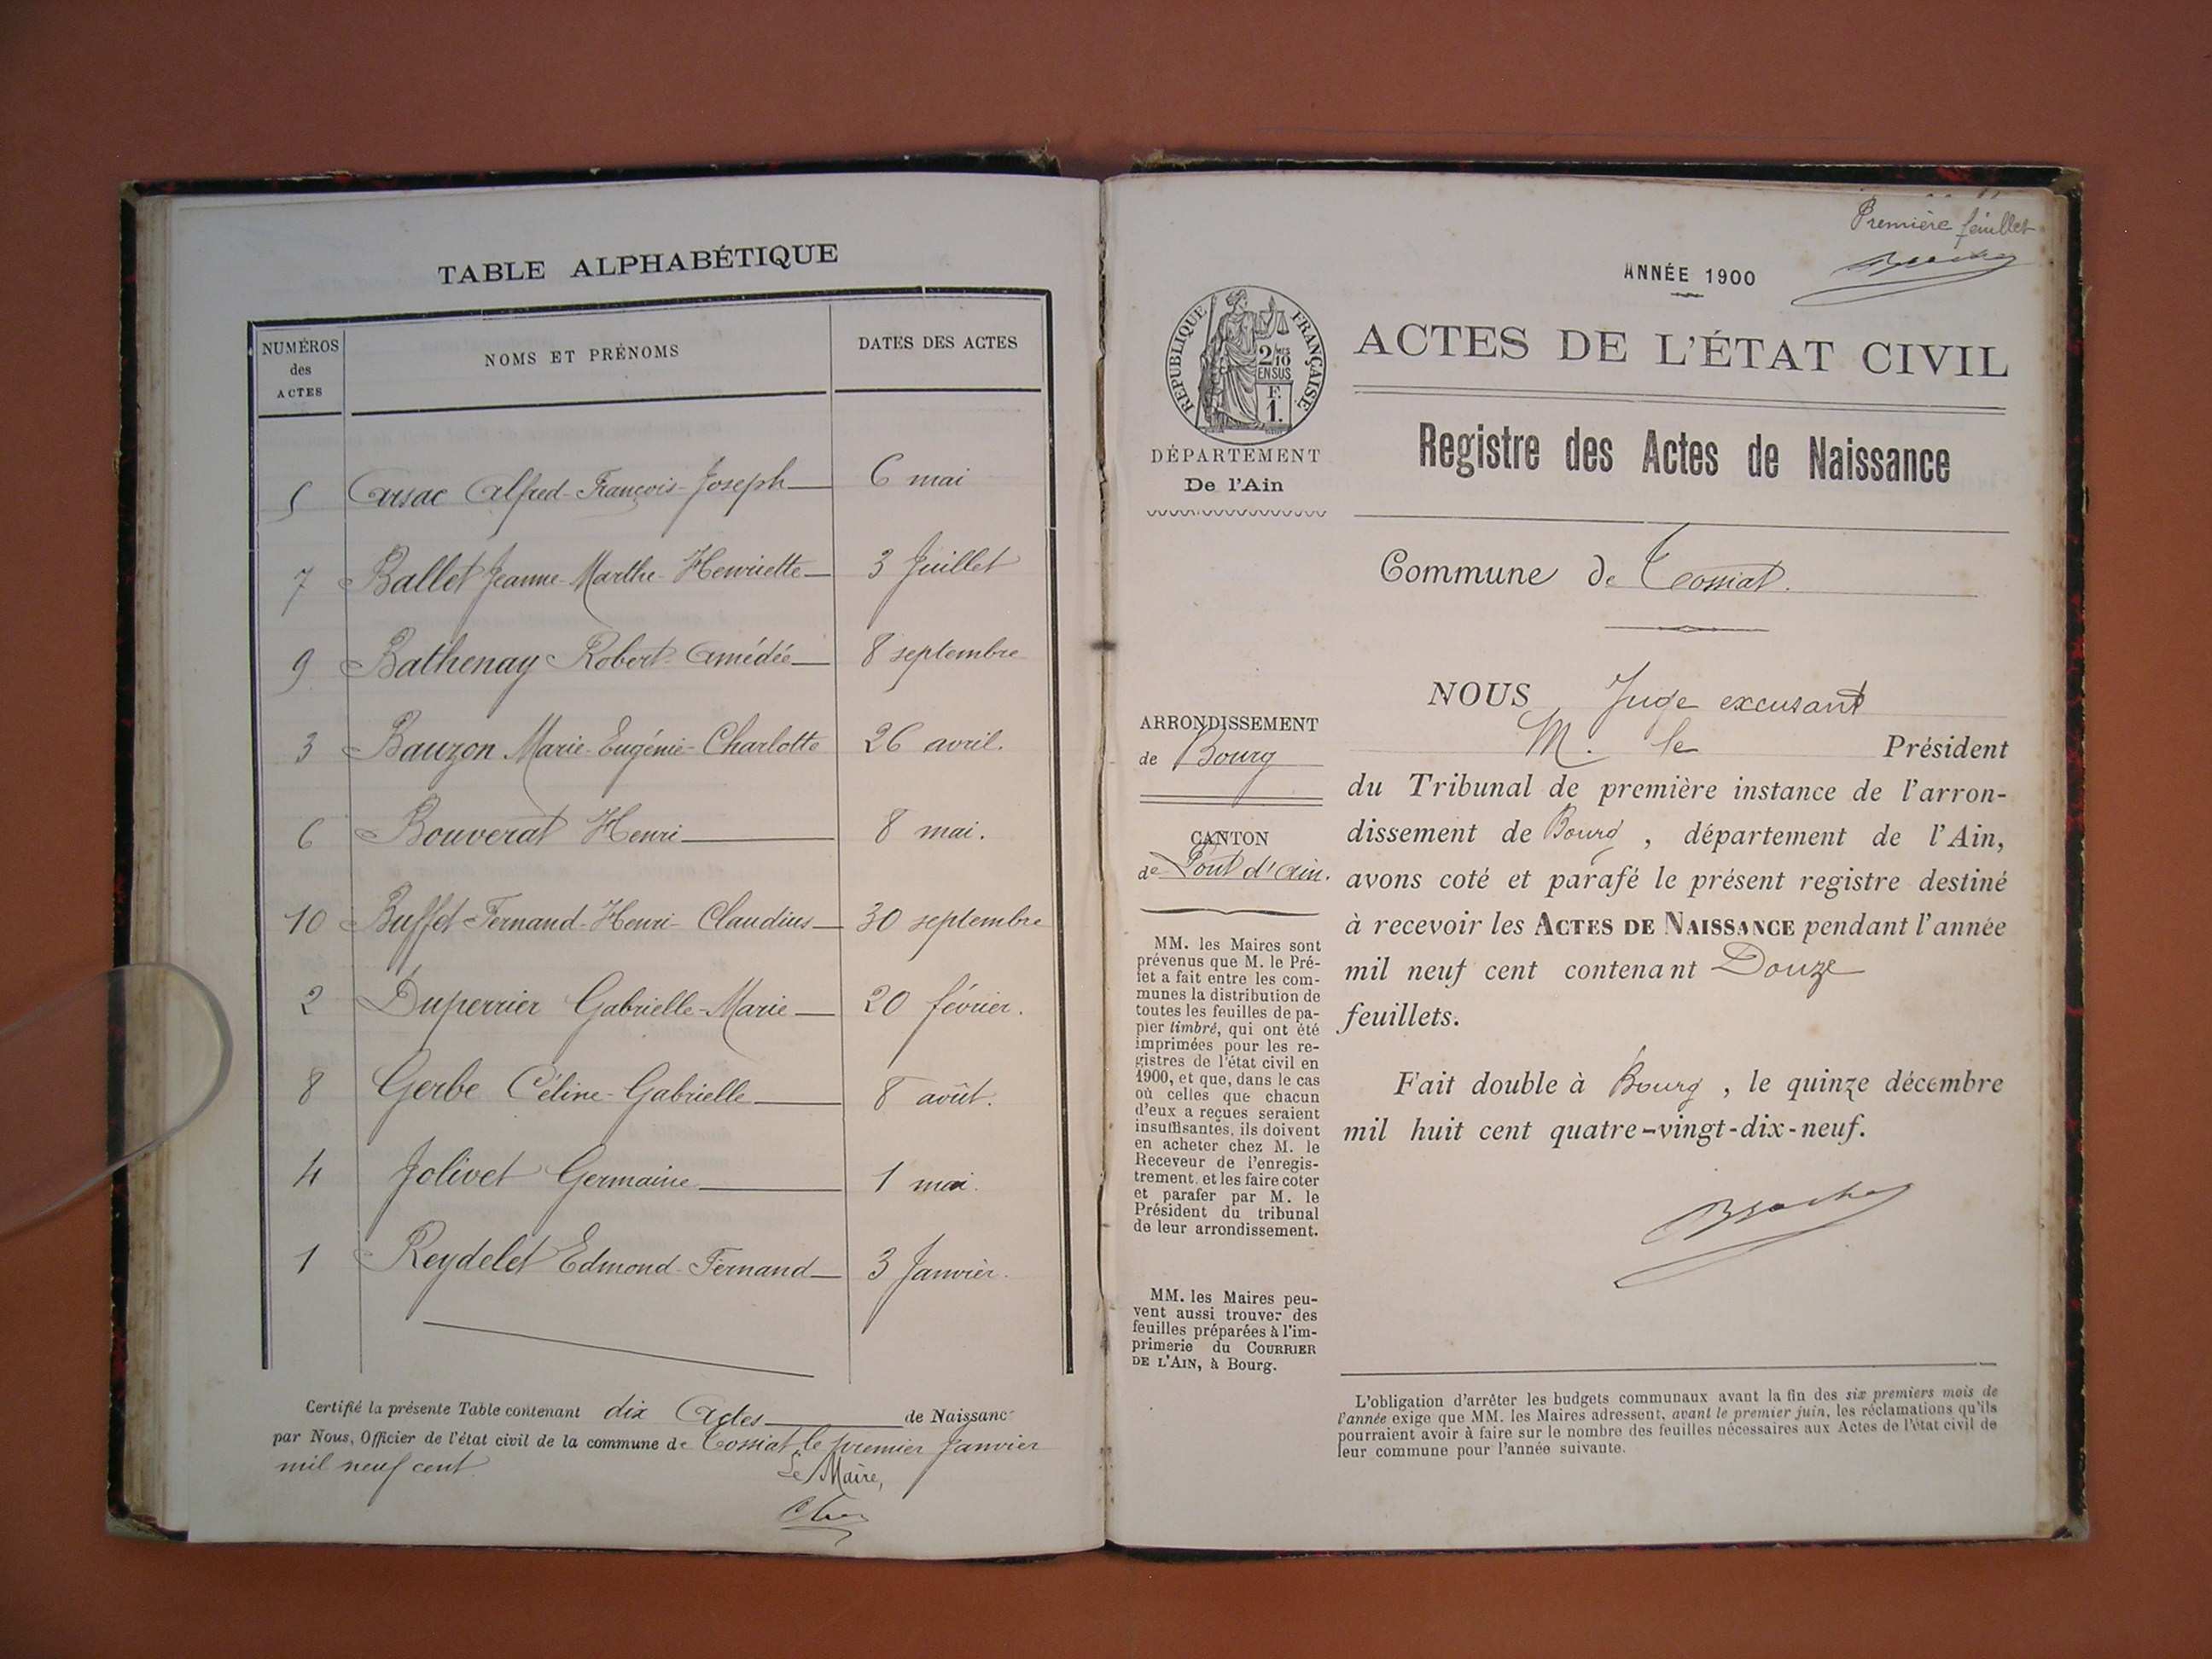 TABLE ALPHABÉTIQUE
NUMÉROS des ACTES NOMS ET PRÉNOMS DATES DES ACTES
5 Arsac Alfred-François-Joseph 6 mai
7 Ballet Jeanne-Marthe-Henriette 3 Juillet
9 Bathenay Robert-Amédée 8 septembre
3 Bauzon Marie-Eugénie-Charlotte 26 avril.
6 Bouverat Henri 8 mai.
10 Buffet Fernand-Henri-Claudius 30 septembre
2 Duperrier Gabrielle-Marie 20 février.
8 Gerbe Céline-Gabrielle 8 août.
4 Jolivet Germaine 1 mai.
1 Reydelet Edmond-Fernand 3 Janvier.
Certifié la présente Table contenant dix Actes de Naissanc
par Nous, Officier de l'état civil de la commune de Tossiat, le premier Janvier
mil neuf cent
Le Maire,
Première feuillet
ANNÉE 1900
RÉPUBLIQUE FRANÇAISE
2/10MES
EN SUS
F.
1.
ACTES DE L'ÉTAT CIVIL
DÉPARTEMENT
De l'Ain
Registre des Actes de Naissance
Commune de Tossiat.
ARRONDISSEMENT
de Bourg
CANTON
de Pont d'Ain.
MM. les Maires sont
prévenus que M. le Pré-
fet a fait entre les com-
munes la distribution de
toutes les feuilles de pa-
pier timbré, qui ont été
imprimées pour les re-
gistres de l'état civil en
1900, et que, dans le cas
où celles que chacun
d'eux a reçues seraient
insuffisantes, ils doivent
en acheter chez M. le
Receveur de l'enregis-
trement, et les faire coter
et parafer par M. le
Président du tribunal
de leur arrondissement.
MM. les Maires peu-
vent aussi trouver des
feuilles préparées à l'im-
primerie du COURRIER
DE L'AIN, à Bourg.
NOUS Juge excusant
M. le Président
du Tribunal de première instance de l'arron-
dissement de Bourg, département de l'Ain,
avons coté et parafé le présent registre destiné
à recevoir les ACTES DE NAISSANCE pendant l'année
mil neuf cent contenant Douze
feuillets.
Fait double à Bourg, le quinze décembre
mil huit cent quatre-vingt-dix-neuf.
L'obligation d'arrêter les budgets communaux avant la fin des six premiers mois de
l'année exige que MM. les Maires adressent, avant le premier juin, les réclamations qu'ils
pourraient avoir à faire sur le nombre des feuilles nécessaires aux Actes de l'état civil de
leur commune pour l'année suivante.